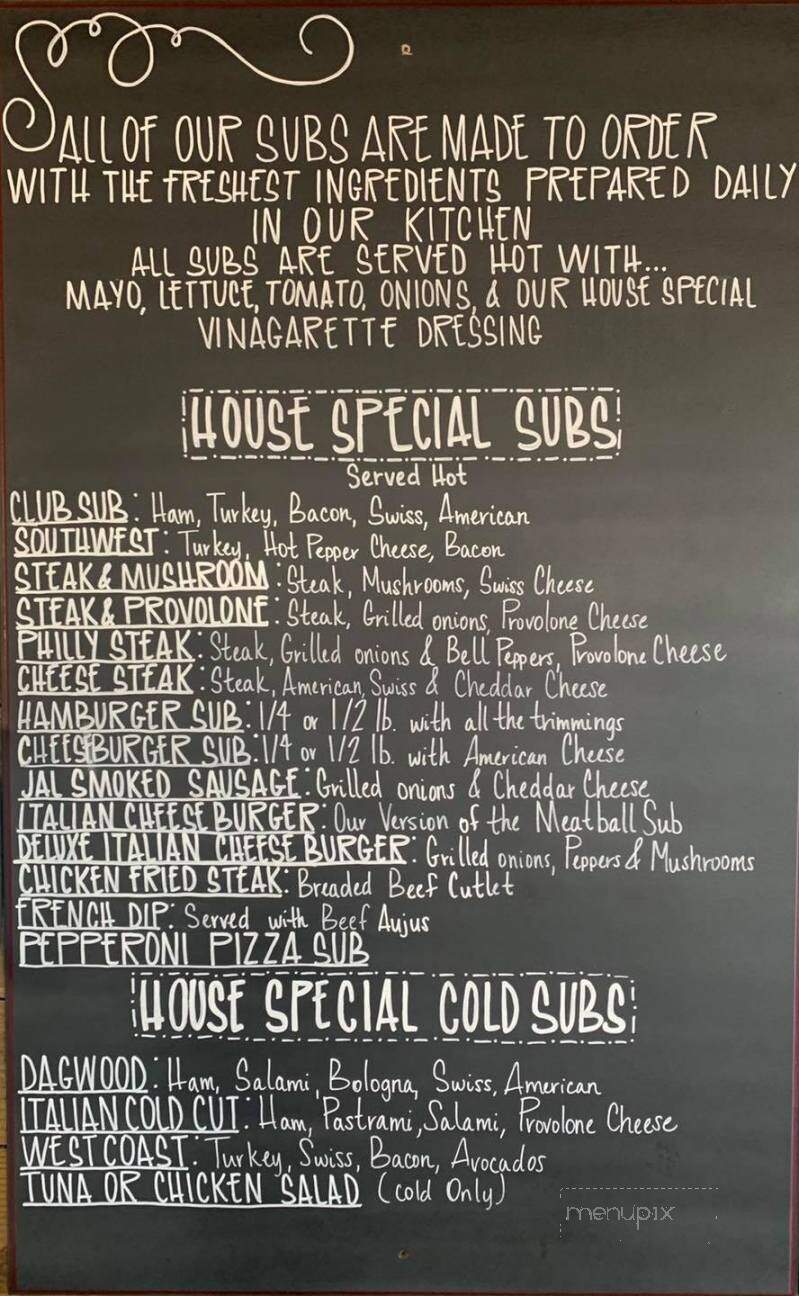 ALL OF OUR SUBS ARE MADE TO ORDER
WITH THE FRESHEST INGREDIENTS PREPARED DAILY
IN OUR KITCHEN
ALL SUBS ARE SERVED HOT WITH...
MAYO, LETTUCE, TOMATO, ONIONS, & OUR HOUSE SPECIAL
VINAGARETTE DRESSING
HOUSE SPECIAL SUBS
Served Hot
CLUB SUB: Ham, Turkey, Bacon, Swiss, American
SOUTHWEST: Turkey, Hot Pepper Cheese, Bacon
STEAK & MUSHROOM: Steak, Mushrooms, Swiss Cheese
STEAK & PROVOLONE: Steak, Grilled onions, Provolone Cheese
PHILLY STEAK: Steak, Grilled onions & Bell Peppers, Provolone Cheese
CHEESE STEAK: Steak, American, Swiss & Cheddar Cheese
HAMBURGER SUB: 1/4 or 1/2 lb. with all the trimmings
CHEESEBURGER SUB: 1/4 or 1/2 lb. with American Cheese
JAL SMOKED SAUSAGE: Grilled onions & Cheddar Cheese
ITALIAN CHEESE BURGER: Our Version of the Meatball Sub
DELUXE ITALIAN CHEESE BURGER: Grilled onions, Peppers & Mushrooms
CHICKEN FRIED STEAK: Breaded Beef Cutlet
FRENCH DIP: Served with Beef Aujus
PEPPERONI PIZZA SUB
HOUSE SPECIAL COLD SUBS
DAGWOOD: Ham, Salami, Bologna, Swiss, American
ITALIAN COLD CUT: Ham, Pastrami, Salami, Provolone Cheese
WEST COAST: Turkey, Swiss, Bacon, Avocados
TUNA OR CHICKEN SALAD (cold Only)
menupix